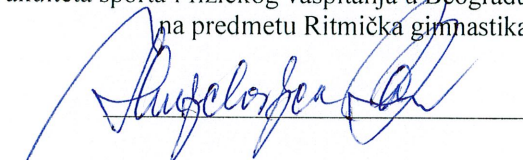 akulteta sporta i fizičkog vaspitanja u Beogradu
na predmetu Ritmička gimnastika